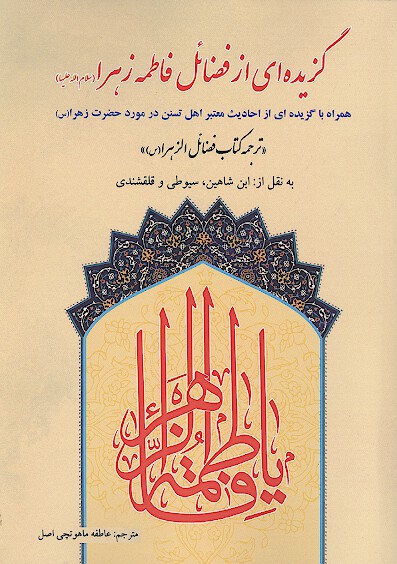 گزیده‌ای از فضائل فاطمه زهرا (سلام الله علیها)
همراه با گزیده ای از احادیث معتبر اهل تسنن در مورد حضرت زهرا (س)
«ترجمه کتاب فضائل الزهرا (س)»
به نقل از: ابن شاهین، سیوطی و قلقشندی
یا فاطمة الزهراء
مترجم: عاطفه ماهوتچی اصل